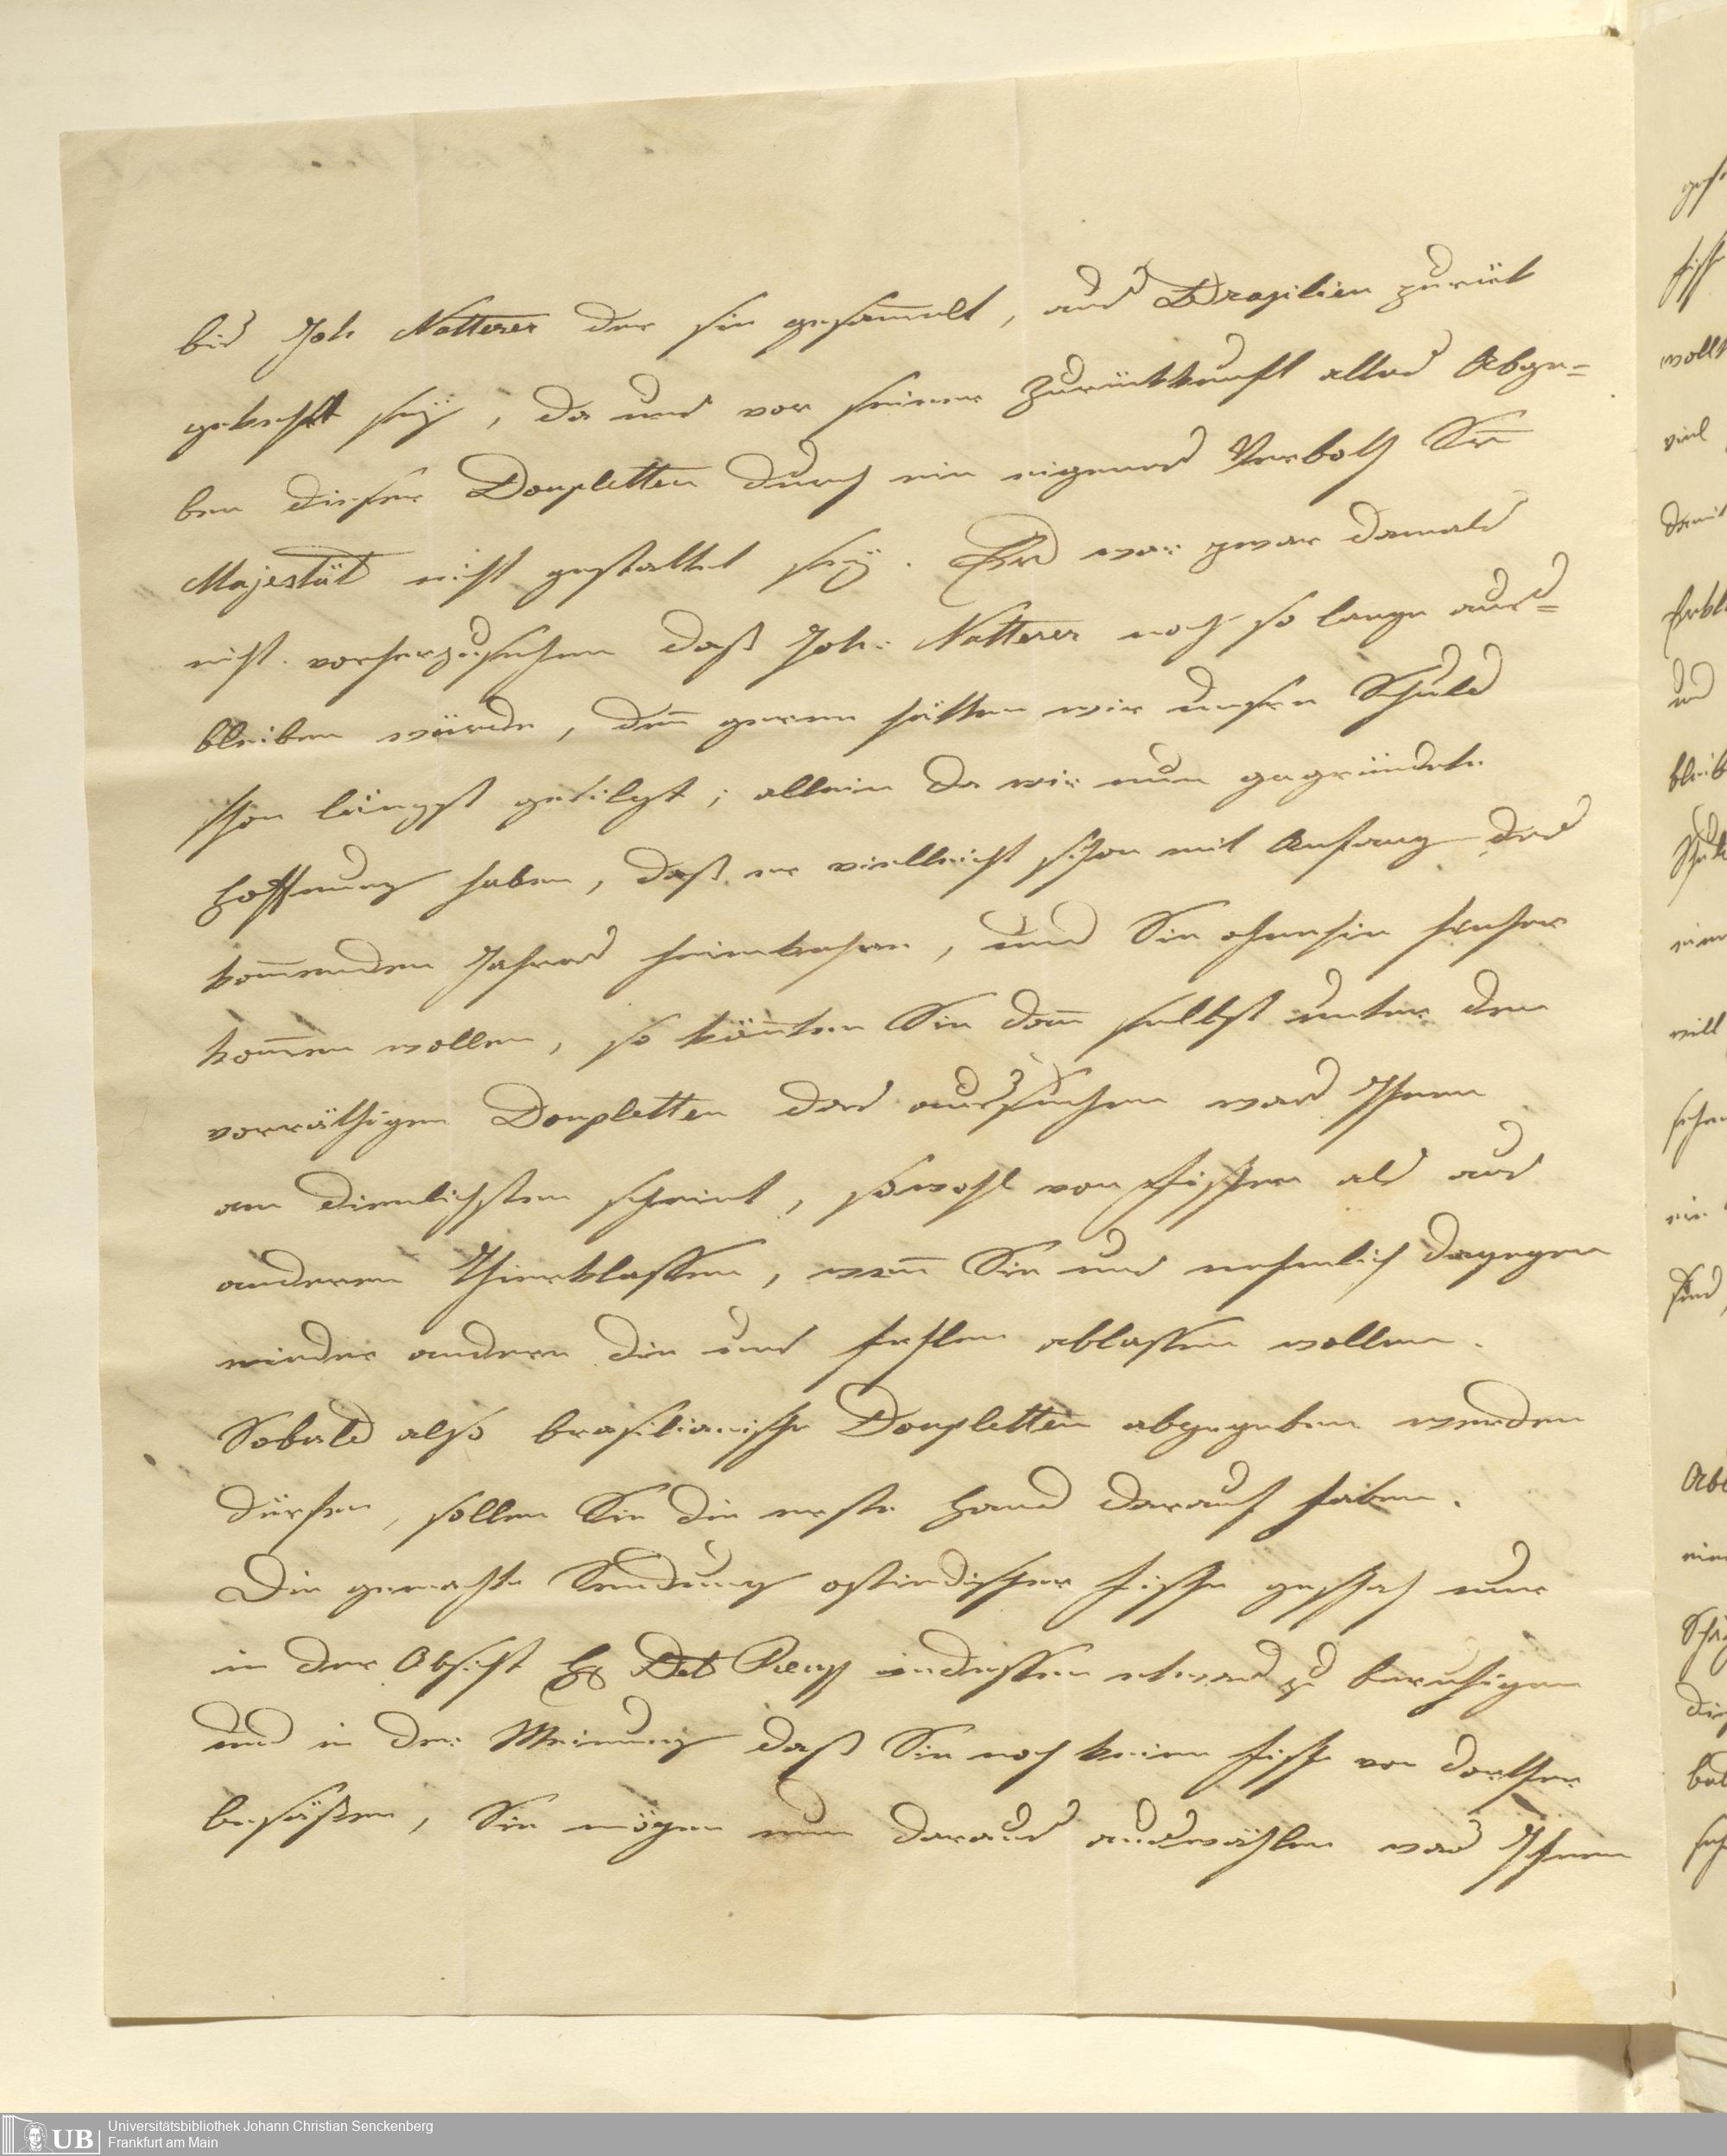 bis Joh Natterer der sie gesam̅elt, aus Brasilien zurük
gekehrt seÿ, da uns vor seiner Zurückkunft alles Abge=
ben dieser Doupletten durch ein eigenes Verboth Sr̅
Majestät nicht gestattet seÿ. Es war zwar damals
nicht vorherzusehen daß Joh: Natterer noch so lange aus=
bleiben würde, den̅ gerne hätten wir unsre Schuld
schon längst getilgt; allein da wir nun gegründete
Hoffnung haben, daß er vielleicht schon mit Anfang des
kom̅enden Jahres heimkehre, und Sie ohnehin hieher
kom̅en wollen, so kön̅ten Sie dan̅ selbst unter den
vorräthigen Doupletten das aussuchen was Ihnen
am dienlichsten scheint, sowohl von Fischen als aus
anderen Thierklassen, wen̅ Sie uns nehmlich dagegen
wieder andere die uns fehlen ablassen wollen.
Sobald also brasilianische Doupletten abgegeben werden
dürfen, sollen Sie die erste Hand darauf haben.
Die gemachte Sendung ostindischer Fische geschah nur
in der Absicht H. indessen etwas zu beruhigen
und in der Meinung daß Sie noch keine Fische von dorther
besäßen, Sie mögen nun daraus auswählen was Ihnen
UB Universitätsbibliothek Johann Christian Senckenberg
Frankfurt am Main